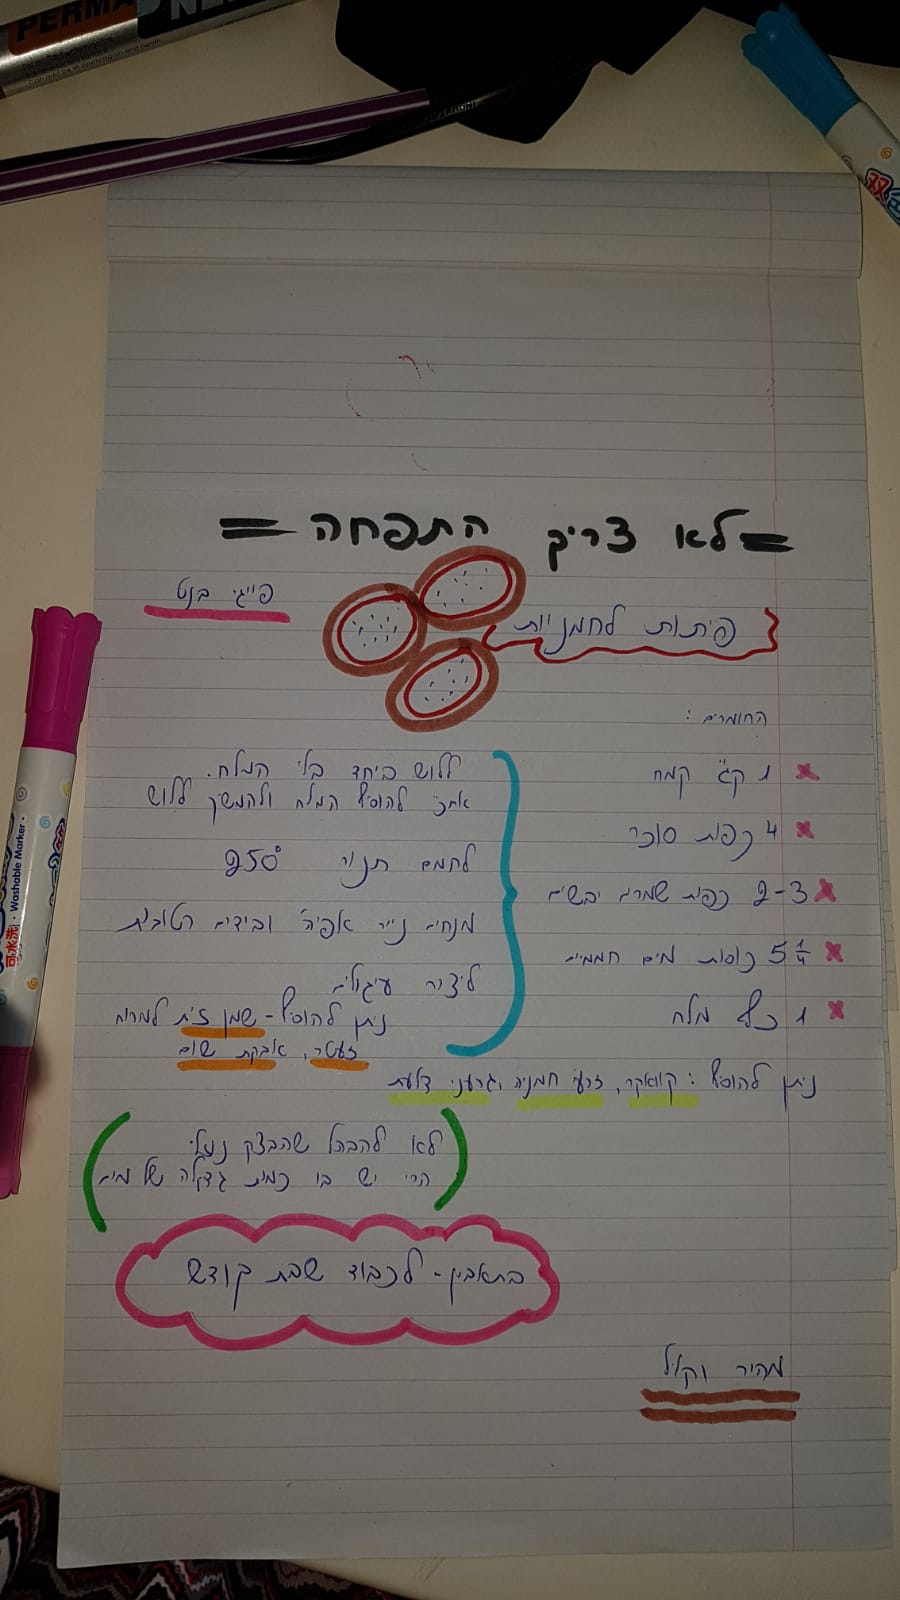 PERMA
NE
Washable Marker
可水洗
双
= לא צריך התפחה =
פייגי בנט
פיתות לחמניות
החומרים:
1 ק"ג קמח
4 כפות סוכר
2-3 כפות שמרים יבשים
5 1/4 כוסות מים חמימים
1 כף מלח
ללוש ביחד בלי המלח.
אח"כ להוסיף המלח ולהמשיך ללוש
לחמם תנור 250°
מנחים נייר אפיה ובידים רטובות
ליצור עיגולים
ניתן להוסיף - שמן זית למרוח
זעטר, אבקת שום
ניתן להוסיף: קוואקר, זרעי חמניה, גרעיני דלעת
(לא להבהל שהבצק נוזלי
הרי יש בו כמות גדולה של מים)
בתאבון - לכבוד שבת קודש
מהיר וקליל